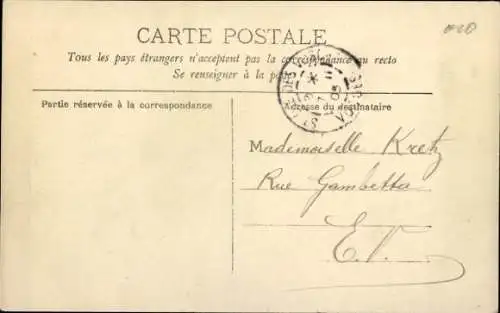 CARTE POSTALE
Tous les pays étrangers n'acceptent pas la correspondance au recto
Se renseigner à la poste
Partie réservée à la correspondance
Adresse du destinataire
Mademoiselle Kretz
Rue Gambetta
E.V.